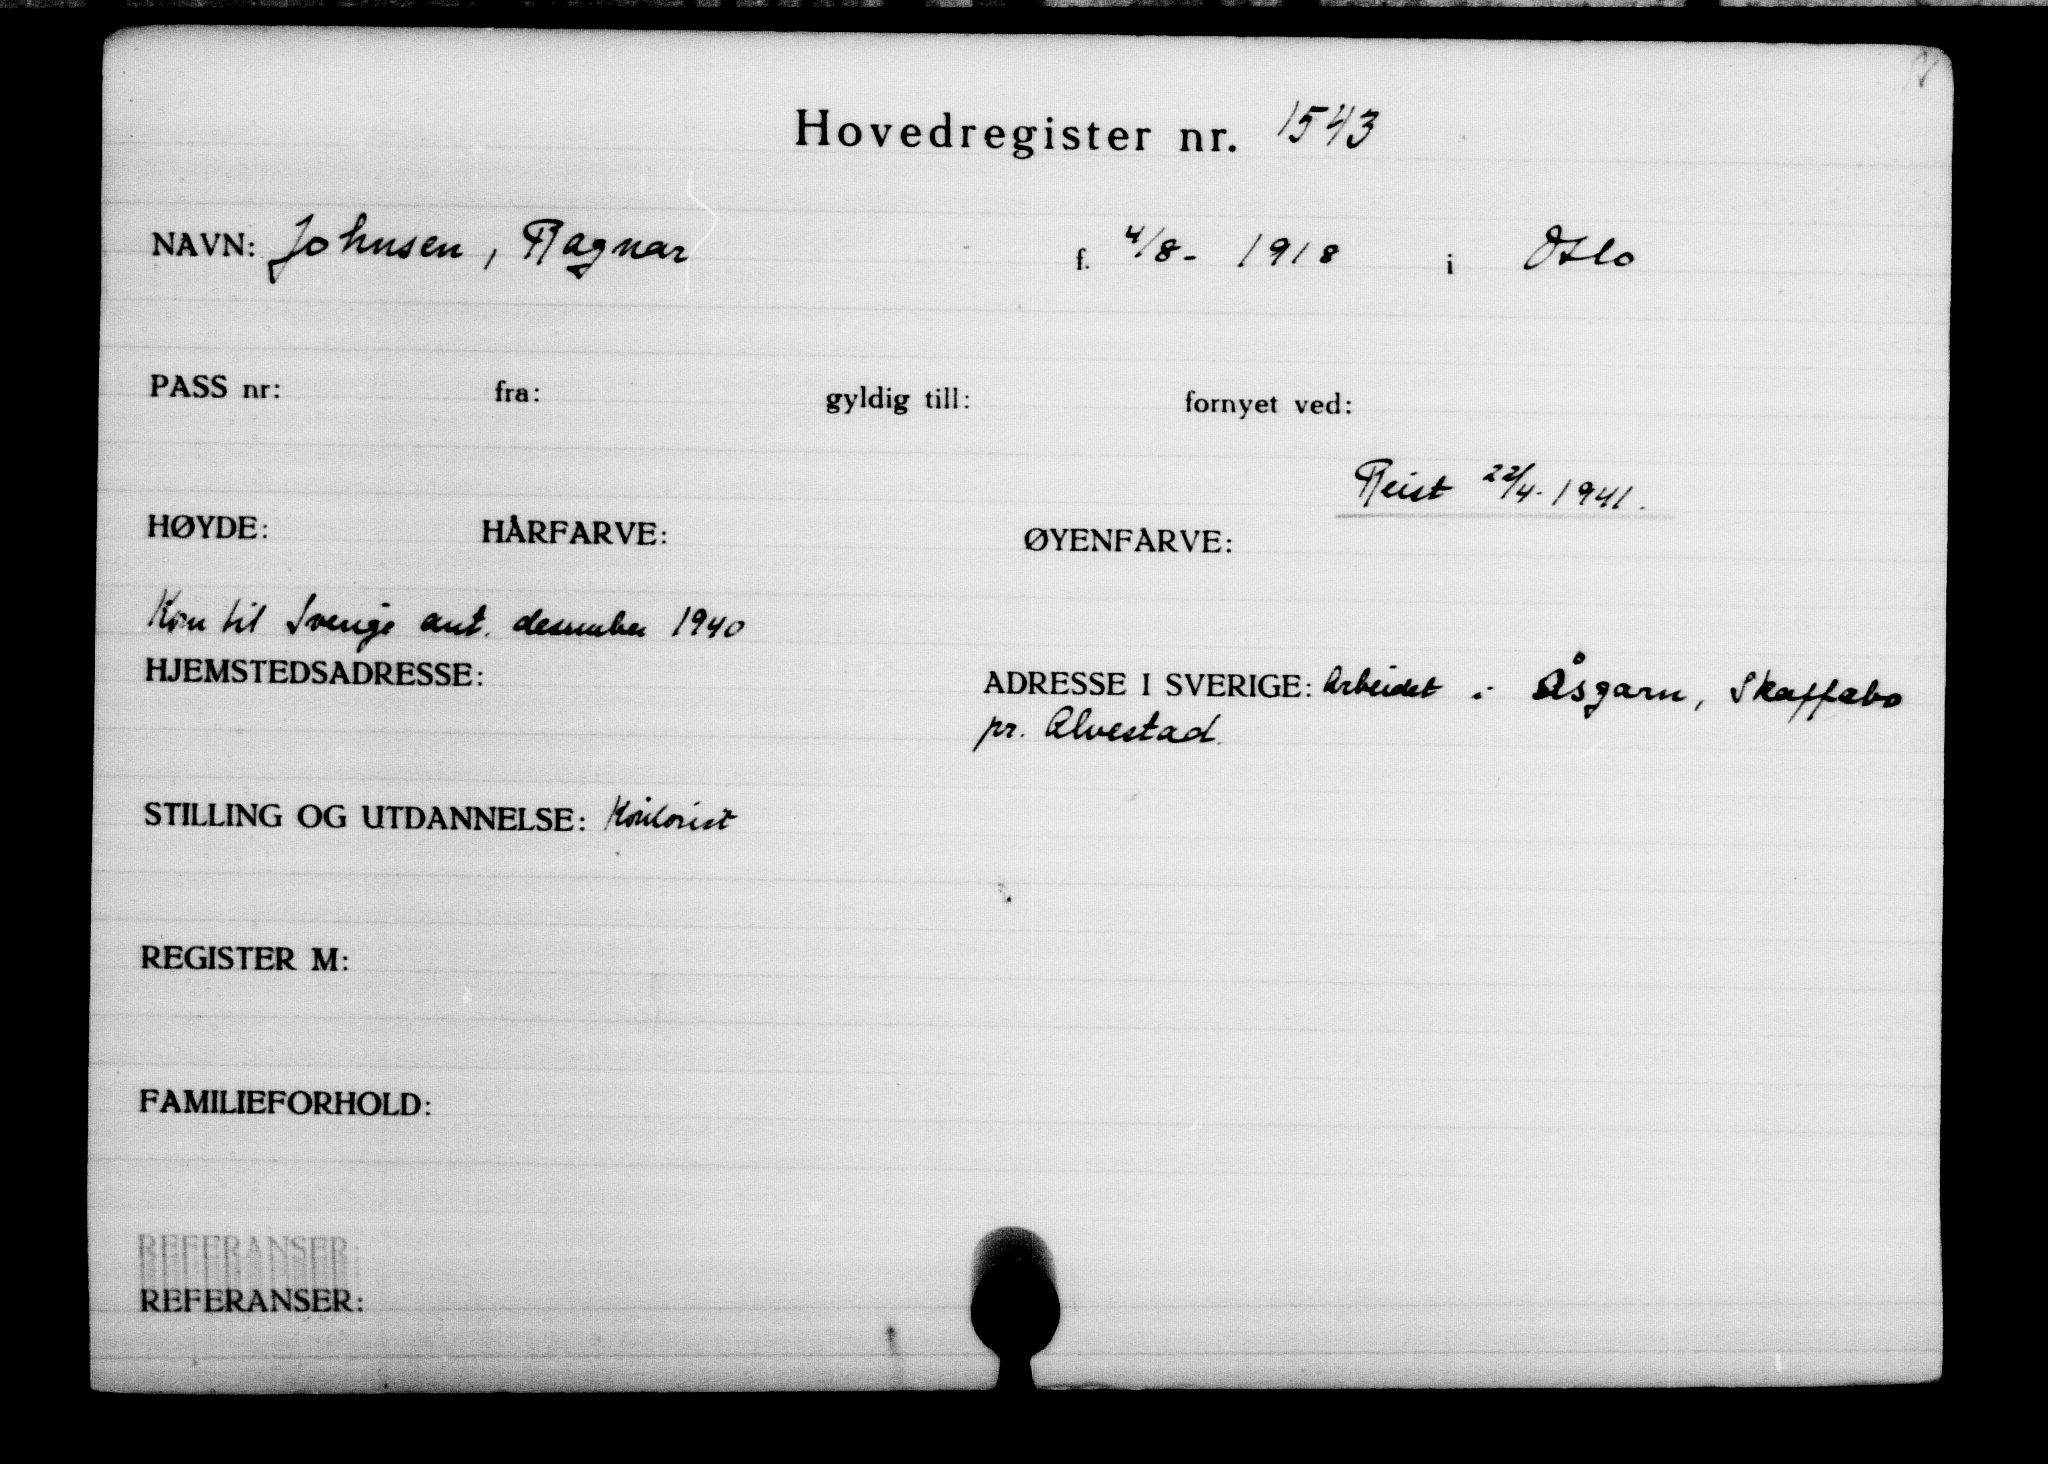 Hovedregister nr. 1543
NAVN: Johnsen, Ragnar f. 4/8- 1918 i Oslo
PASS nr: fra: gyldig till: fornyet ved:
Reist 22/4-1941.
HØYDE: HÅRFARVE: ØYENFARVE:
Kom til Sverige ant. desember 1940
HJEMSTEDSADRESSE: ADRESSE I SVERIGE: Arbeidet i Åsgarn, Skaffebo
pr. Alvestad.
STILLING OG UTDANNELSE:
REGISTER M:
FAMILIEFORHOLD:
REFERANSER:
REFERANSER: